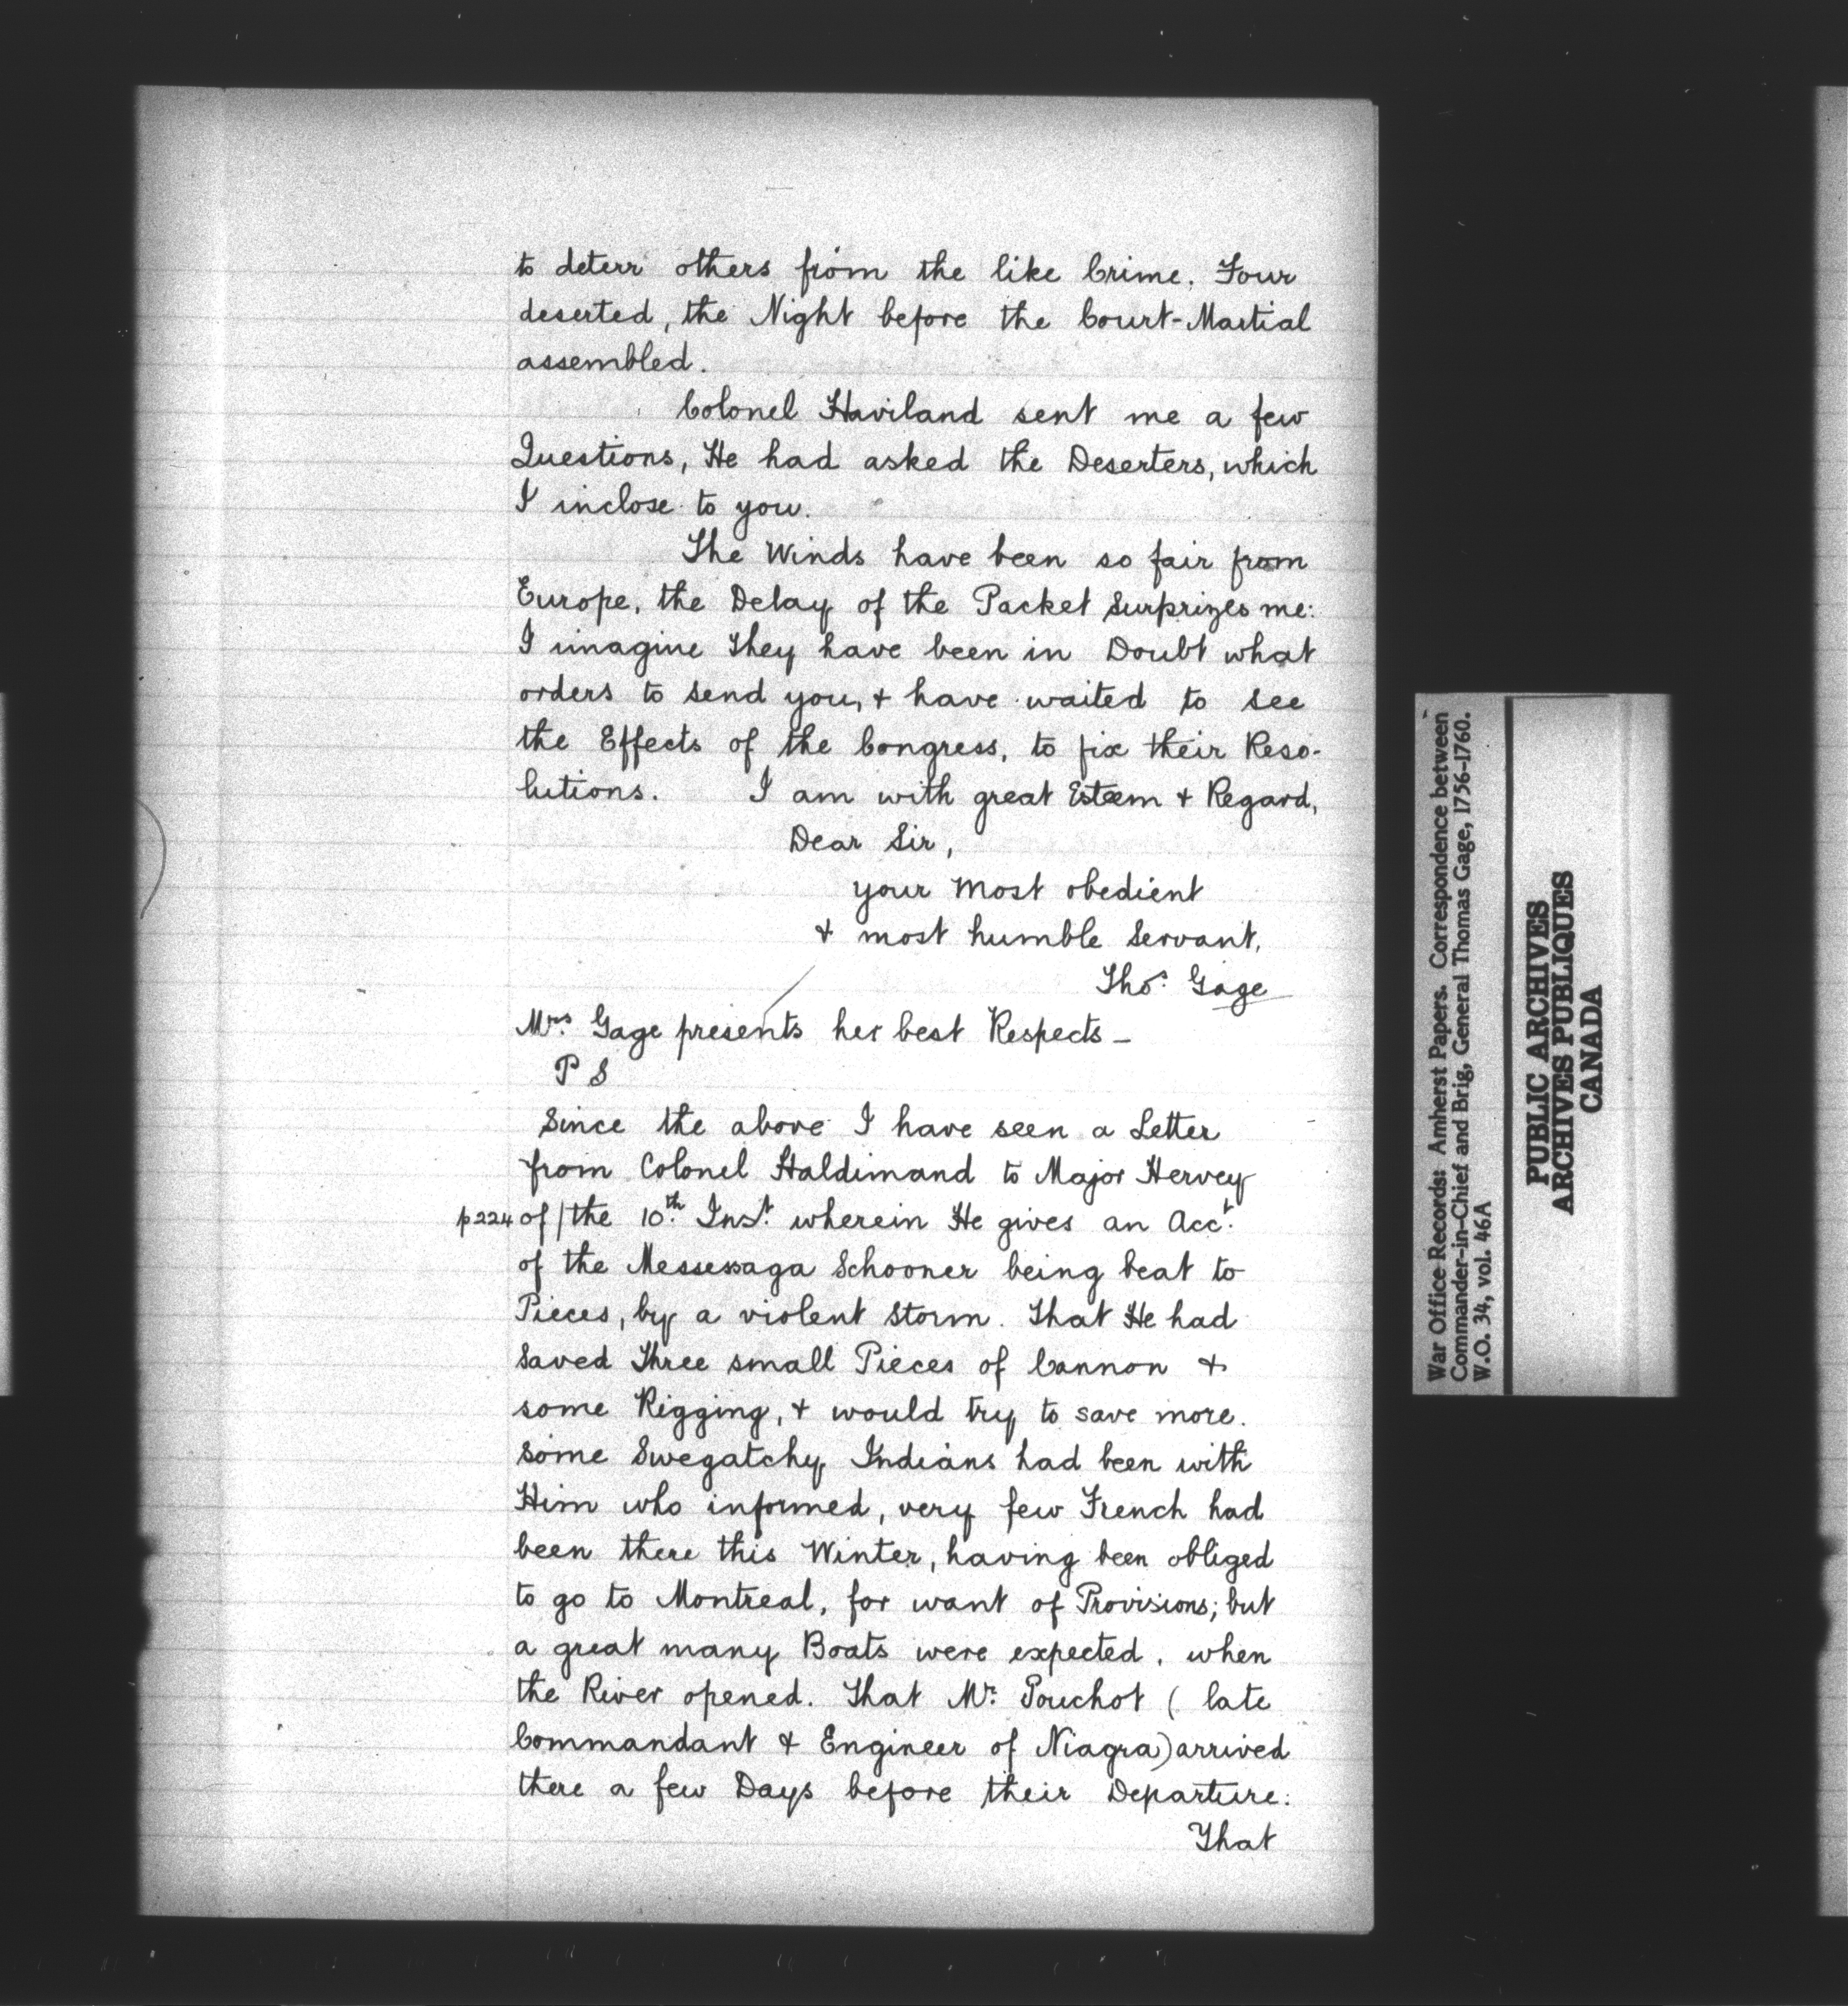 to deterr others from the like Crime. Four
deserted, the Night before the Court-Martial
assembled.
Colonel Haviland sent me a few
Questions, He had asked the Deserters, which
I inclose to you.
The Winds have been so fair from
Europe, the Delay of the Packet Surprizes me:
I imagine they have been in Doubt what
orders to send you, & have waited to see
the Effects of the Congress, to fix their Reso-
lutions. I am with great Esteem & Regard,
Dear Sir,
your Most obedient
& most humble Servant,
Thos. Gage
Mrs. Gage presents her best Respects -
P S
Since the above I have seen a Letter
from Colonel Haldimand to Major Hervey
p224 of/the 10th. Inst. wherein He gives an Acct.
of the Messessaga Schooner being beat to
Pieces, by a violent Storm. That He had
Saved Three small Pieces of Cannon &
some Rigging, & would try to save more.
Some Swegatchy Indians had been with
Him who informed, very few French had
been there this Winter, having been obliged
to go to Montreal, for want of Provisions; but
a great many Boats were expected, when
the River opened. That Mr. Pouchot ( late
Commandant & Engineer of Niagra) arrived
there a few Days before their Departure:
That
War Office Records: Amherst Papers. Correspondence between
Commander-in-Chief and Brig, General Thomas Gage, 1756-1760.
W.O. 34, vol. 46A
PUBLIC ARCHIVES
ARCHIVES PUBLIQUES
CANADA